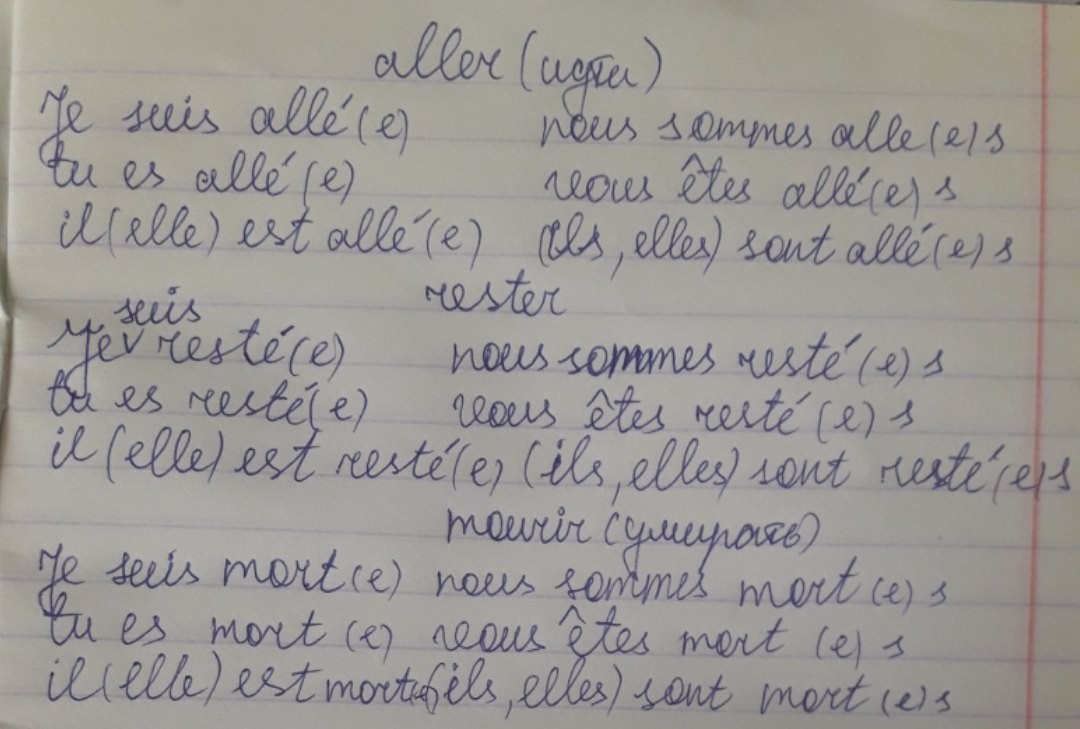 aller (идти)
Je suis allé(e) nous sommes alle(e)s
tu es allé(e) vous êtes allé(e)s
il(elle) est allé(e) (ils, elles) sont allé(e)s
suis rester
Je v resté(e) nous sommes resté(e)s
tu es resté(e) vous êtes resté(e)s
il (elle) est resté(e) (ils, elles) sont resté(e)s
mourir (умирать)
Je suis mort(e) nous sommes mort(e)s
tu es mort(e) vous êtes mort(e)s
il(elle) est mort(e) (ils, elles) sont mort(e)s